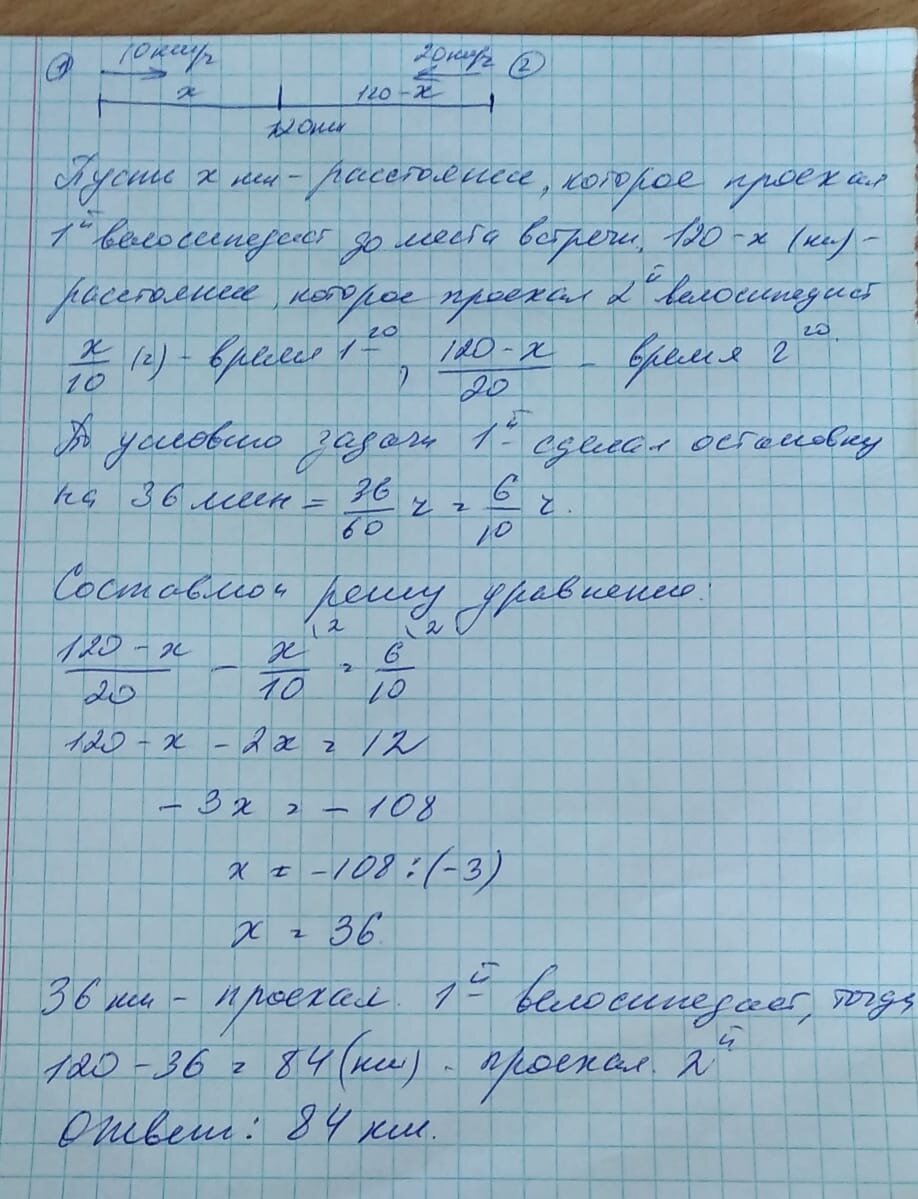 1 10 км/ч 20 км/ч 2
x 120-x
120 км
Пусть x км - расстояние, которое проехал
1й велосипедист до места встречи, 120-x (км) -
расстояние, которое проехал 2й велосипедист
x/10 (ч) - время 1го, (120-x)/20 - время 2го.
По условию задачи 1й сделал остановку
на 36 мин = 36/60 ч = 6/10 ч.
Составлю и решу уравнение:
(120-x)/20 - x/10 \2 = 6/10 \2
120-x - 2x = 12
-3x = -108
x = -108:(-3)
x = 36
36 км - проехал 1й велосипедист, тогда
120-36 = 84 (км) - проехал 2й
Ответ: 84 км.